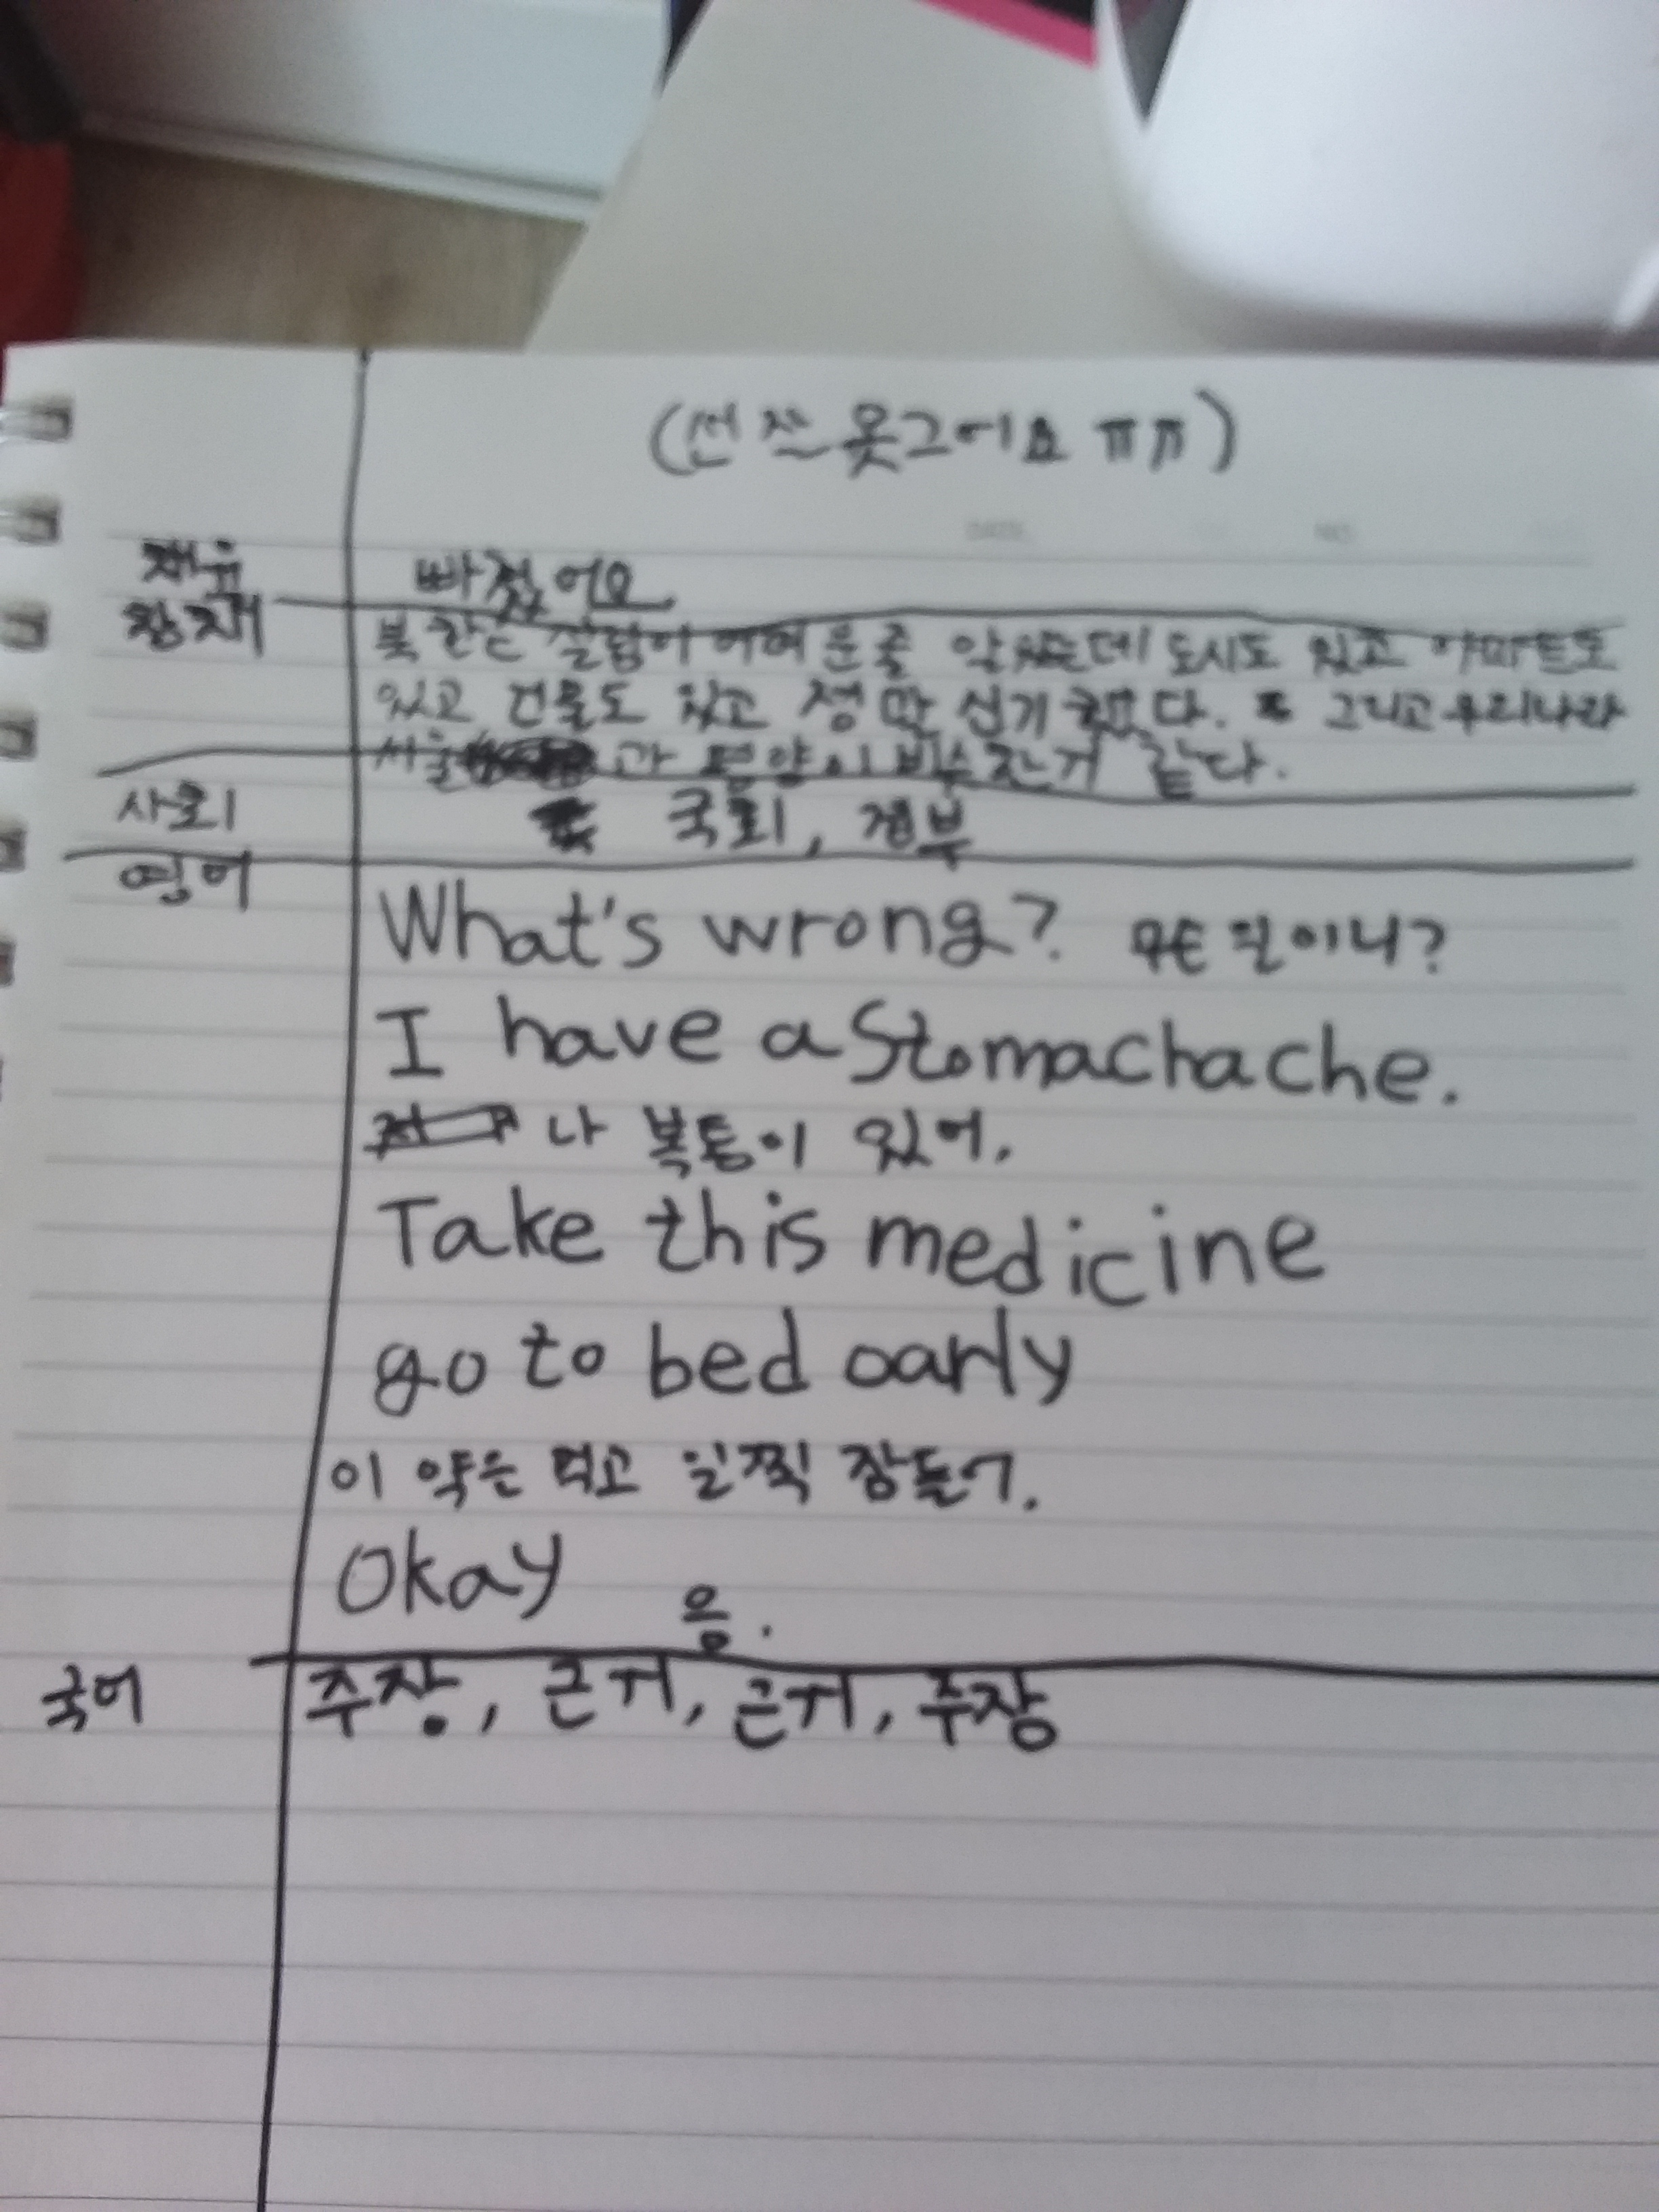 (선 잘 못그어요 ㅠㅠ)
체육 빠졌어요
창체 북한은 살림이 어려운줄 알았는데 도시도 있고 아파트도
있고 건물도 있고 정말 신기했다. 그리고 우리나라
서울과 평양이 비슷한거 같다.
사회 국회, 정부
영어 What's wrong? 무슨 일이니?
I have a Stomachache.
나 복통이 있어.
Take this medicine
go to bed oarly
이 약은 먹고 일찍 잠들어.
Okay 응.
국어 주장, 근거, 근거, 주장